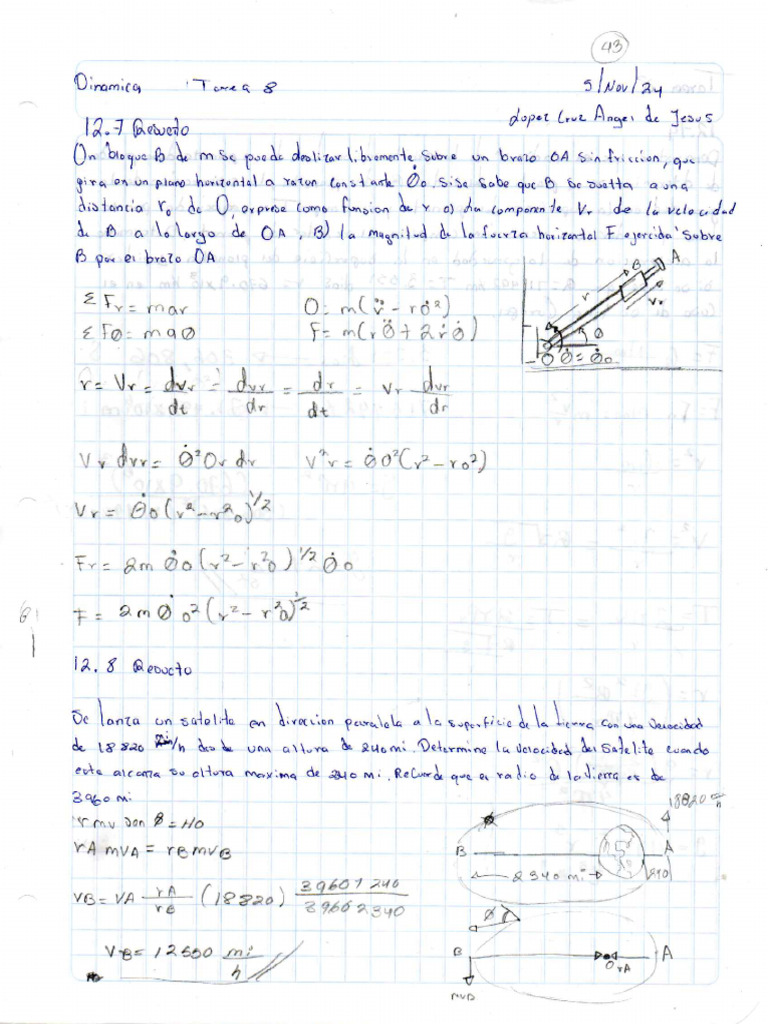 43
Dinamica Tarea 8 5/Nov/24
Lopez Cruz Angel de Jesus
12.7 Resuelto
Un bloque B de m se puede deslizar libremente sobre un brazo OA sin friccion, que
gira en un plano horizontal a razon constante θ̇o. Si se sabe que B se suelta a una
distancia ro de O, exprese como funsion de r a) la componente Vr de la velocidad
de B a lo largo de OA, B) la magnitud de la fuerza horizontal F ejercida sobre
B por el brazo OA
ΣFr = mar O = m(r̈ - rθ̇²)
ΣFθ = maθ F = m(rθ̈ + 2ṙθ̇)
A
B
r
Vr
θ
O θ̇ = θ̇o
r̈ = V̇r = dvr/dt = dvr/dr = dr/dt = vr dvr/dr
Vr dvr = θ̇²Or dr V²r = θ̇o²(r² - ro²)
Vr = θ̇o (r² - r²o)^1/2
Fr = 2m θ̇o (r² - r²o)^1/2 θ̇o
F = 2m θ̇o² (r² - r²o)^1/2
12.8 Resuelto
Se lanza un satelite en direccion paralela a la superficie de la tierra con una velocidad
de 18820 mi/h desde una altura de 240 mi. Determine la velocidad del satelite cuando
este alcanza su altura maxima de 2340 mi. Recuerde que el radio de la tierra es de
3960 mi
r mv sen θ = HO
rA mVA = rB mVB
VB = VA rA/rB (18820) 3960+240/3960+2340
VB = 12550 mi/h
18820 mi/h
B
A
2340 mi
240
B
O rA
A
mVB